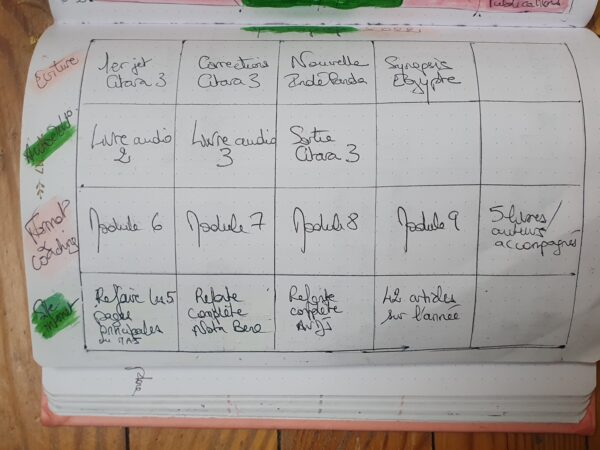 Publications
Écriture
1er jet
Citara 3
Corrections
Citara 3
Nouvelle
Synopsis
Egypte
Livre audio
2
Livre audio
3
Sortie
Citara 3
Format°
&
coaching
Module 6
Module 7
Module 8
Module 9
5 livres/
auteurs
accompagnés
Site
internet
Refaire les 5
pages
principales
Refonte
complète
Nota Bene
Refonte
complète
42 articles
sur l'année